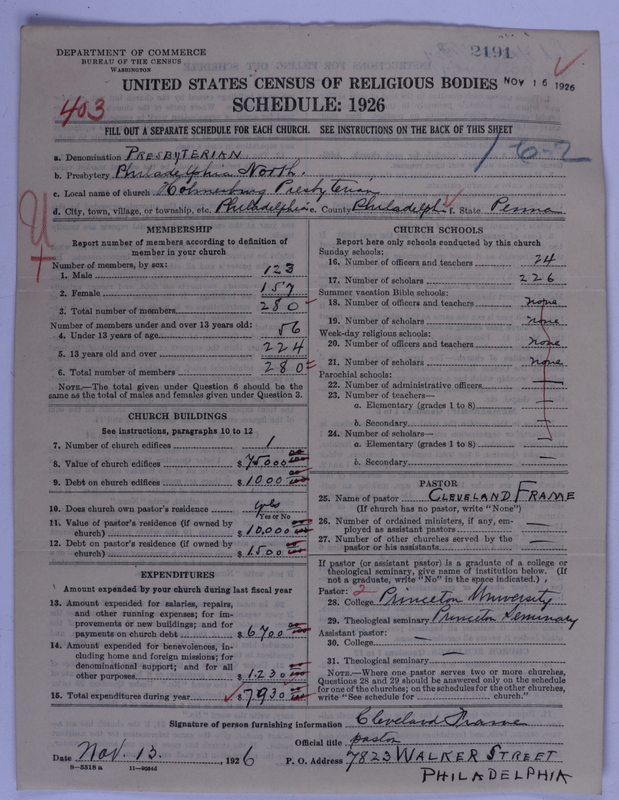 DEPARTMENT OF COMMERCE
BUREAU OF THE CENSUS
WASHINGTON
2191
UNITED STATES CENSUS OF RELIGIOUS BODIES NOV 16 1926
SCHEDULE: 1926
403
FILL OUT A SEPARATE SCHEDULE FOR EACH CHURCH. SEE INSTRUCTIONS ON THE BACK OF THIS SHEET
1-6-2
a. Denomination PRESBYTERIAN
b. Presbytery Philadelphia North.
c. Local name of church Holmesburg Presbyterian
d. City, town, village, or township, etc. Philadelphia e. County Philadelphia f. State Penna
U
MEMBERSHIP
Report number of members according to definition of member in your church
Number of members, by sex:
1. Male 123
2. Female 157
3. Total number of members 280
Number of members under and over 13 years old:
4. Under 13 years of age 56
5. 13 years old and over 224
6. Total number of members 280
NOTE.—The total given under Question 6 should be the same as the total of males and females given under Question 3.
CHURCH BUILDINGS
See instructions, paragraphs 10 to 12
7. Number of church edifices 1
8. Value of church edifices $ 75000 00
9. Debt on church edifices $ 1000 00
10. Does church own pastor's residence? yes
Yes or No
11. Value of pastor's residence (if owned by church) $ 10,000 00
12. Debt on pastor's residence (if owned by church) $ 1500 00
EXPENDITURES
Amount expended by your church during last fiscal year
13. Amount expended for salaries, repairs, and other running expenses; for improvements or new buildings; and for payments on church debt $ 6700 00
14. Amount expended for benevolences, including home and foreign missions; for denominational support; and for all other purposes $ 1230 00
15. Total expenditures during year $ 7930 00
CHURCH SCHOOLS
Report here only schools conducted by this church
Sunday schools:
16. Number of officers and teachers 24
17. Number of scholars 226
Summer vacation Bible schools:
18. Number of officers and teachers none
19. Number of scholars none
Week-day religious schools:
20. Number of officers and teachers none
21. Number of scholars none
Parochial schools:
22. Number of administrative officers —
23. Number of teachers—
a. Elementary (grades 1 to 8) —
b. Secondary —
24. Number of scholars—
a. Elementary (grades 1 to 8) —
b. Secondary —
PASTOR
25. Name of pastor CLEVELAND FRAME
(If church has no pastor, write "None")
26. Number of ordained ministers, if any, employed as assistant pastors —
27. Number of other churches served by the pastor or his assistants —
If pastor (or assistant pastor) is a graduate of a college or theological seminary, give name of institution below. (If not a graduate, write "No" in the space indicated.)
Pastor: 2
28. College Princeton University
29. Theological seminary Princeton Seminary
Assistant pastor:
30. College —
31. Theological seminary —
NOTE.—Where one pastor serves two or more churches, Questions 28 and 29 should be answered only on the schedule for one of the churches; on the schedules for the other churches, write "See schedule for ........ church."
Signature of person furnishing information Cleveland Frame
Official title pastor
Date Nov. 13. , 1926 P. O. Address 7823 WALKER STREET
PHILADELPHIA
8-5518 a 11-9684d